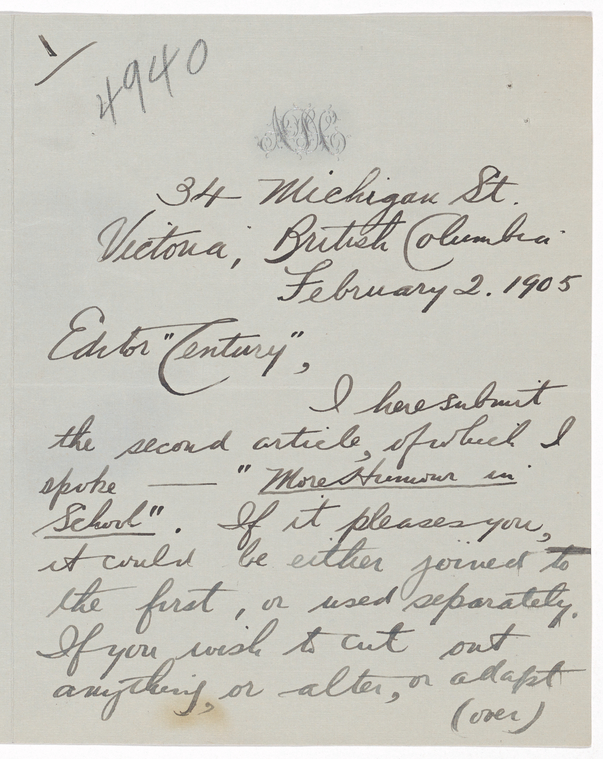 4940
34 Michigan St.
Victoria, British Columbia
February 2. 1905
Editor "Century",
I here submit
the second article, of which I
spoke — "More Humour in
School". If it pleases you,
it could be either joined to
the first, or used separately.
If you wish to cut out
anything, or alter, or adapt
(over)